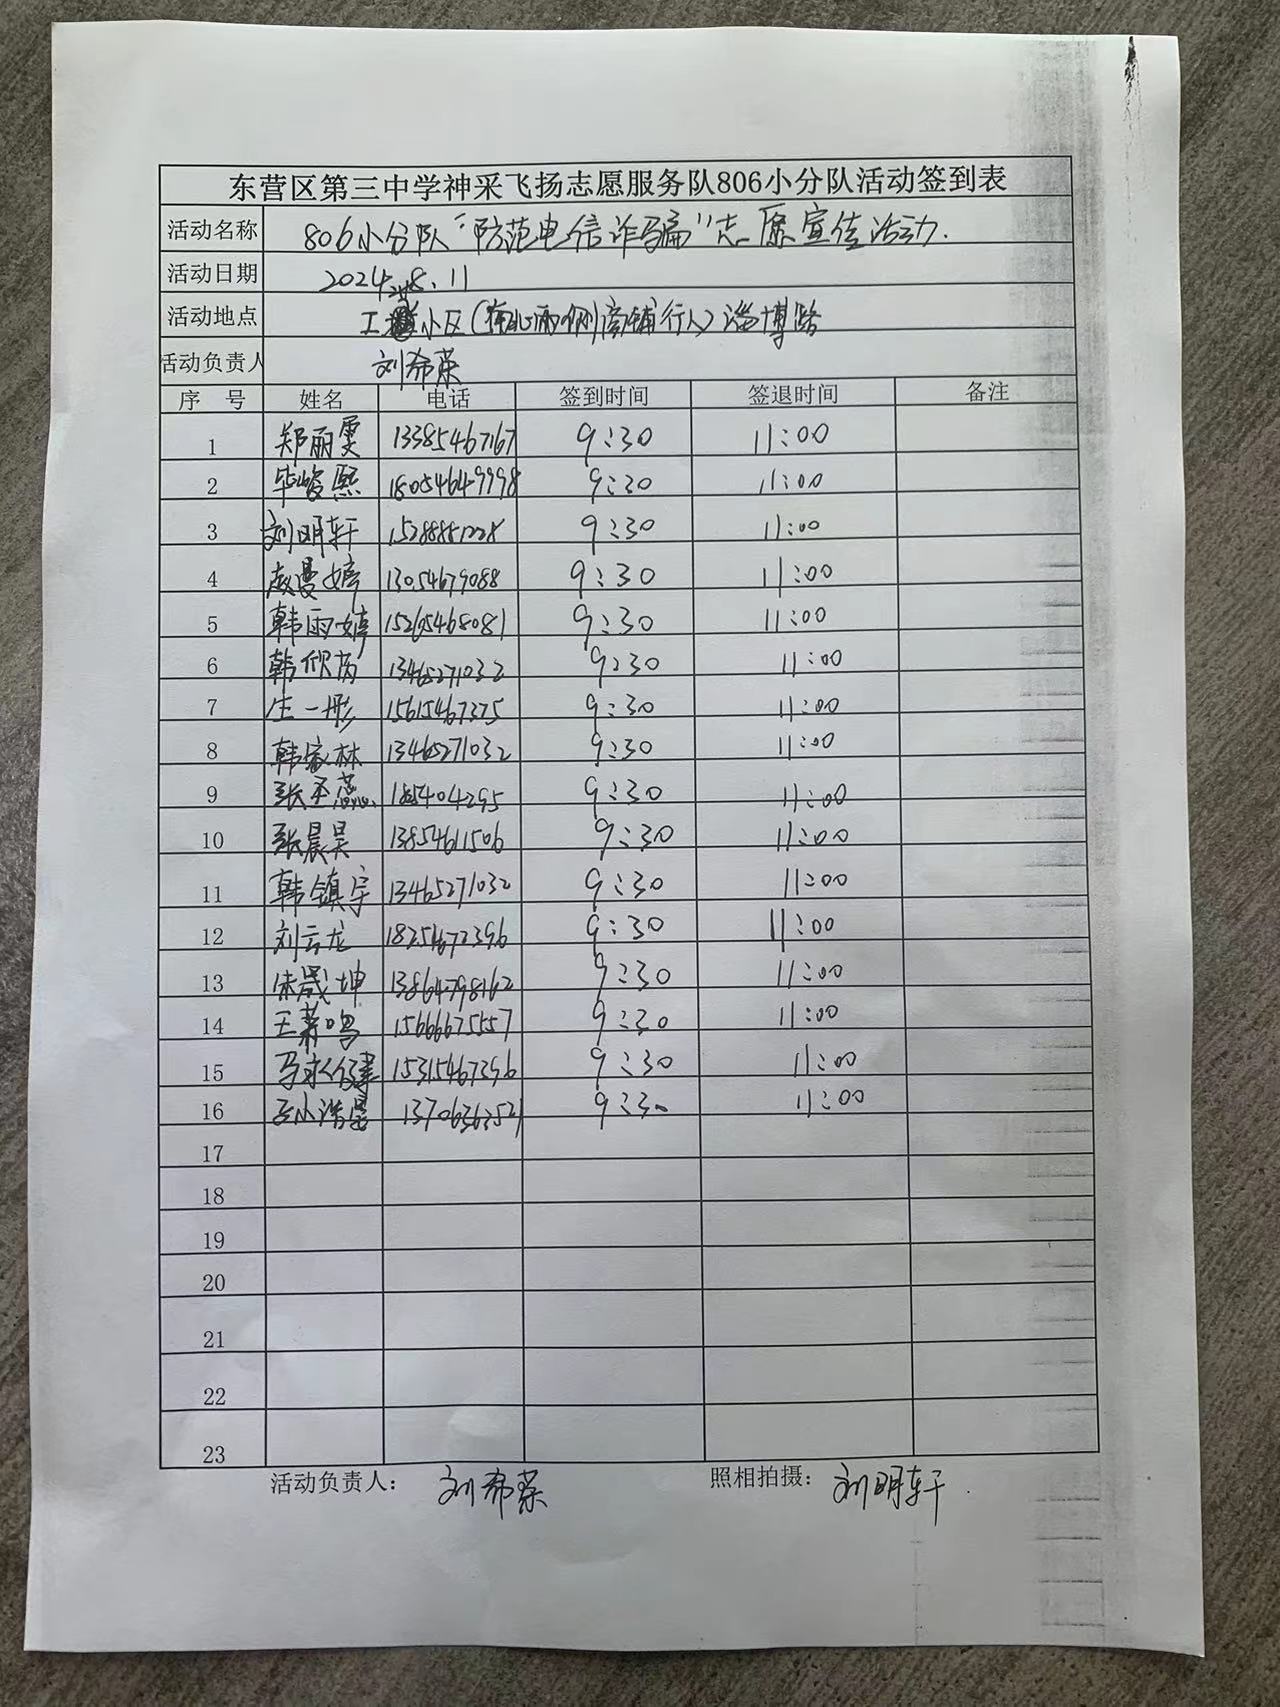 东营区第三中学神采飞扬志愿服务队806小分队活动签到表
活动名称 806小分队“防范电信诈骗”志愿宣传活动.
活动日期 2024.8.11
活动地点 小区(两侧商铺行人)淄博路
活动负责人 刘希荣
序 号 姓名 电话 签到时间 签退时间 备注
1 郑丽雯 13385467167 9:30 11:00
2 毕峻熙 18054649998 9:30 11:00
3 刘明轩 9:30 11:00
4 赵曼婷 13054679088 9:30 11:00
5 韩雨婷 15265468081 9:30 11:00
6 韩欣芮 13465271032 9:30 11:00
7 庄一彤 15615467375 9:30 11:00
8 韩家林 13465271032 9:30 11:00
9 张 9:30 11:00
10 张晨昊 13854611506 9:30 11:00
11 韩镇宇 13465271032 9:30 11:00
12 刘云龙 9:30 11:00
13 宋晟坤 13864798162 9:30 11:00
14 王 15666675557 9:30 11:00
15 马 15315467396 9:30 11:00
16 9:30 11:00
17
18
19
20
21
22
23
活动负责人: 刘希荣 照相拍摄: 刘明轩